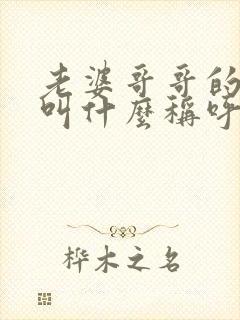 老婆哥哥的
叫什麼稱呼
桦木之名